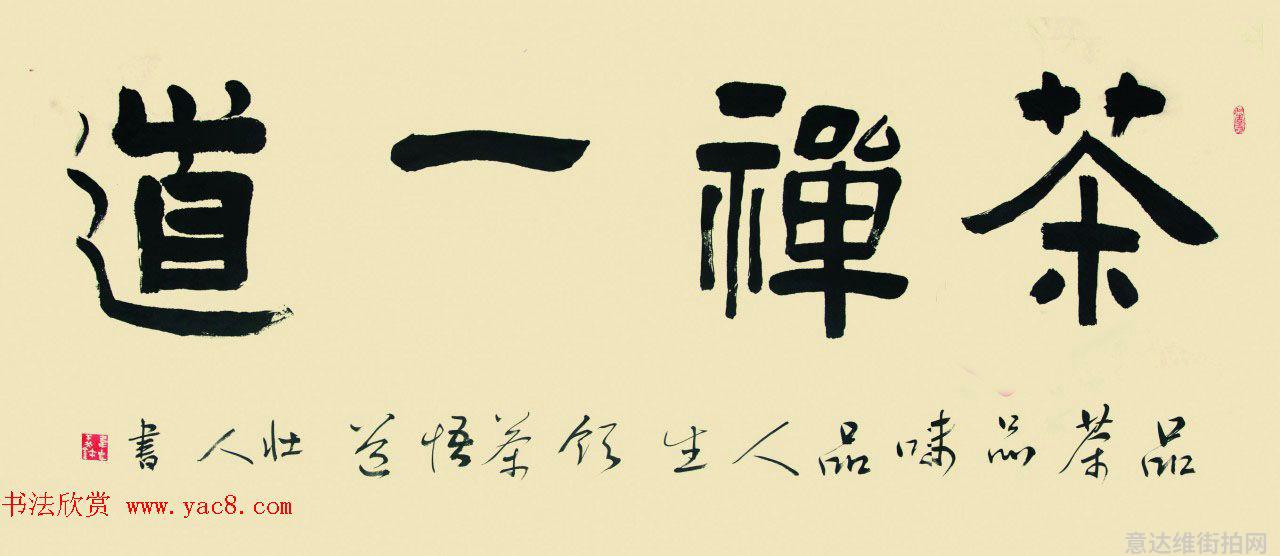 茶禪一道
品茶品味品人生 饮茶悟道 壮人書
书法欣赏 www.yac8.com
意达维街拍网